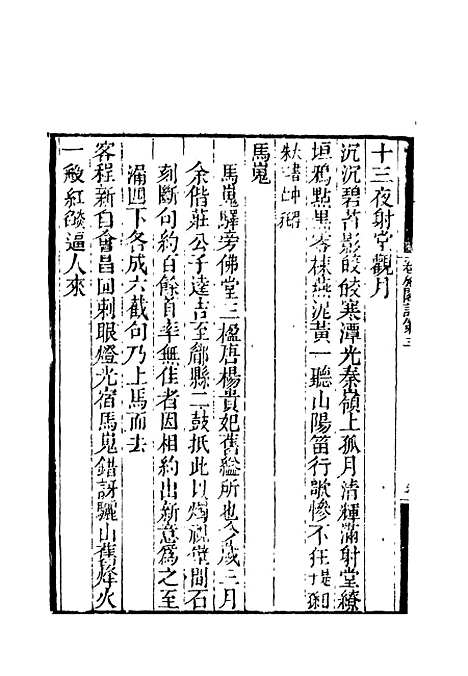 十三夜射堂觀月
沉沉碧苔影皎皎寒潭光秦嶺上孤月清輝滿射堂繚
垣鴉點黑客榻燕泥黃一聽山陽笛行歌慘不任提琱
馬嵬
馬嵬驛旁佛堂三楹唐楊貴妃舊縊所也今歲三月
余偕莊公子逵吉至鄠縣二鼓抵此以燭視堂間石
刻斷句約百餘首率無佳者因相約出新意爲之至
漏四下各成六截句乃上馬而去
客程新自會昌回刺眼燈光宿馬嵬錯訝驪山舊烽火
一般紅燄逼人來